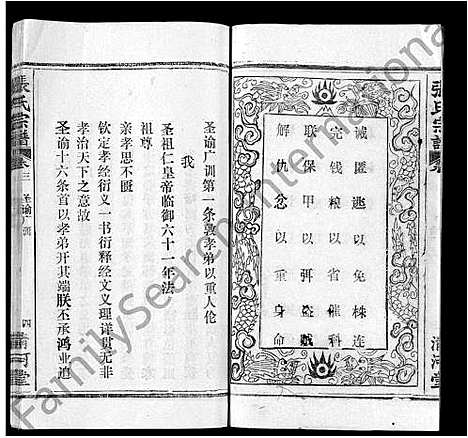 張氏宗譜
誡匿逃以免株連
完钱粮以省催科
联保甲以弭盗贼
解仇忿以重身命
清河堂
圣谕广训第一条敦孝弟以重人伦
我
圣祖仁皇帝临御六十一年法
祖尊
亲孝思不匮
钦定孝经衍义一书衍释经文义理详贯无非
孝治天下之意故
圣谕十六条首以孝弟开其端朕丕承鸿业追
張氏宗譜
卷三
圣谕广训
四
清河堂
FamilySearch International